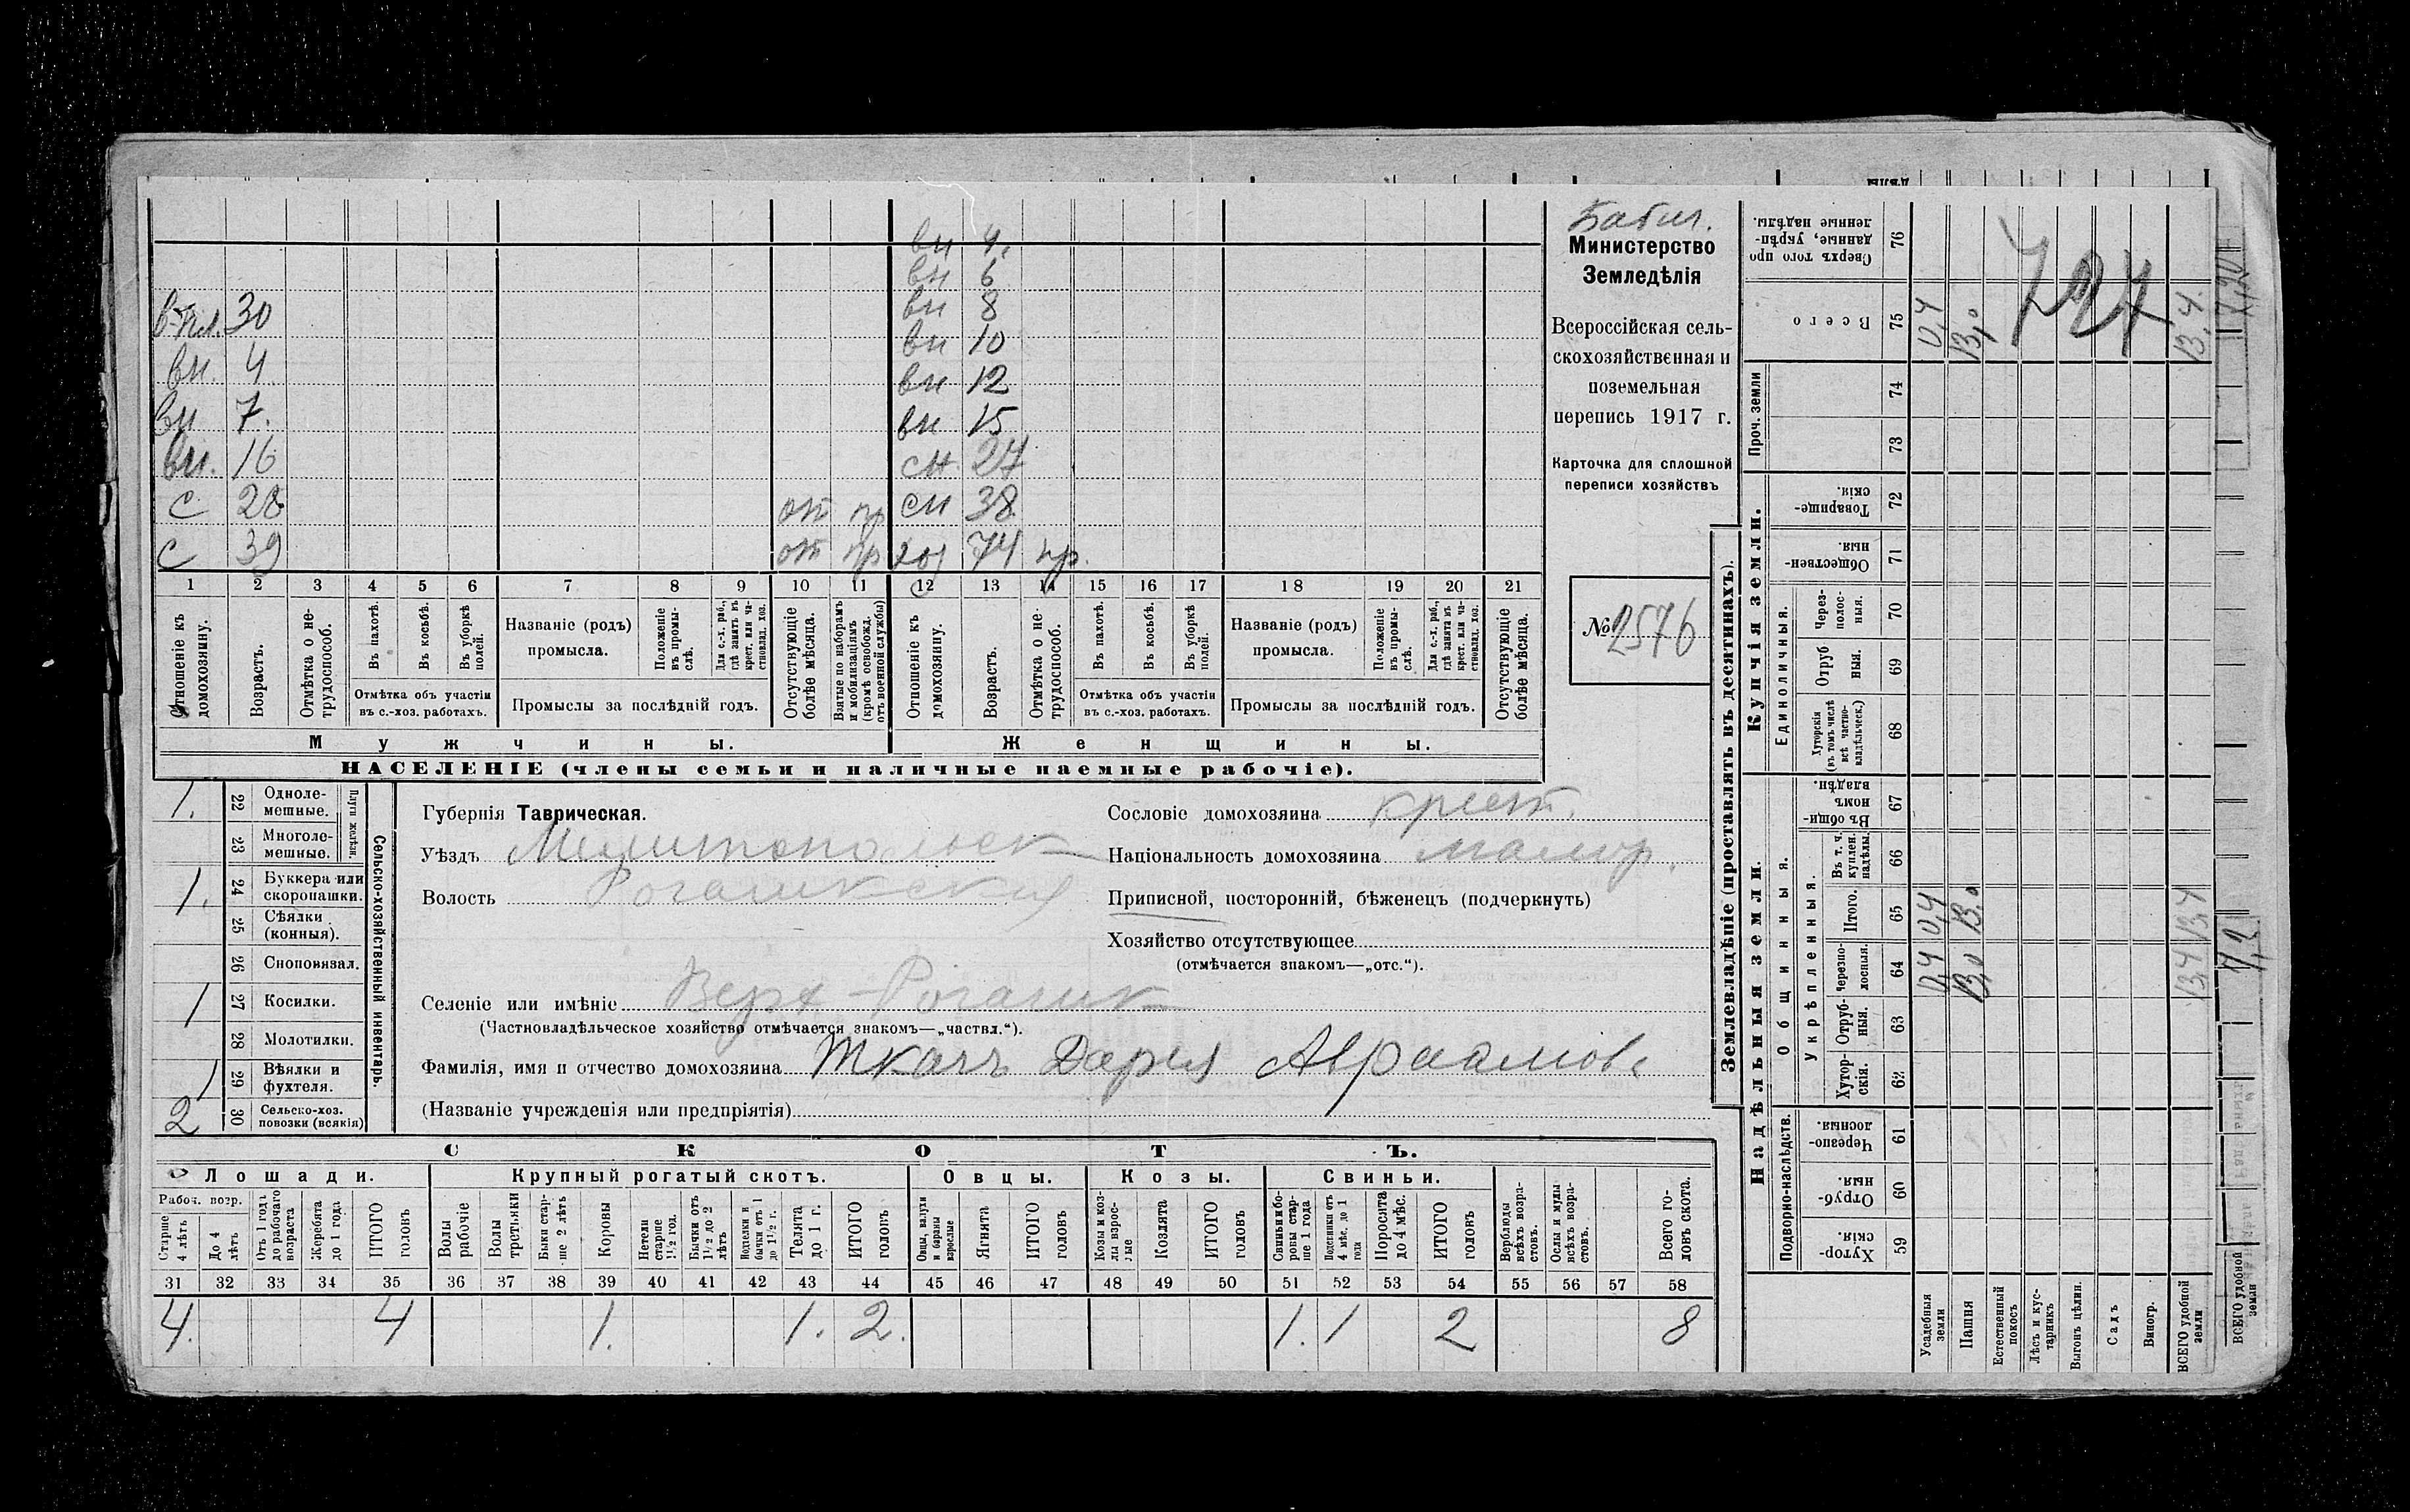 Бабил.
Министерство
Земледѣлія
Всероссійская сель-
скохозяйственная и
поземельная
перепись 1917 г.
Карточка для сплошной
переписи хозяйствъ
№ 2576
вн 4.
вн 6
30 вн 8
вн 10
вн 4 вн 12
вн 7. вн 15
вн. 16 сн. 27
с 28 от пр сн 38
с 39 от пр 74 нр.
1 2 3 4 5 6 7 8 9 10 11 12 13 14 15 16 17 18 19 20 21
Отношеніе къ домохозяину.
Возрастъ.
Отмѣтка о не-трудоспособ.
Въ пахотѣ.
Въ косьбѣ.
Въ уборкѣ полей.
Отмѣтка объ участіи
въ с.-хоз. работахъ.
Названіе (родъ)
промысла.
Положеніе въ промы-слѣ.
Для с.-х. раб., гдѣ занятъ въ крест. или ча-стновлад. хоз.
Промыслы за послѣдній годъ.
Отсутствующіе болѣе мѣсяца.
Взятые по наборамъ и мобилизаціямъ (кромѣ освобожд. отъ военной службы)
Отношеніе къ домохозяину.
Возрастъ.
Отмѣтка о не-трудоспособ.
Въ пахотѣ.
Въ косьбѣ.
Въ уборкѣ полей.
Отмѣтка объ участіи
въ с.-хоз. работахъ.
Названіе (родъ)
промысла.
Положеніе въ промы-слѣ.
Для с.-х. раб., гдѣ занята въ крест. или ча-стновлад. хоз.
Промыслы за послѣдній годъ.
Отсутствующіе болѣе мѣсяца.
Мужчины. Женщины.
НАСЕЛЕНІЕ (члены семьи и наличные наемные рабочіе).
1. 22 Одноле-мешные.
23 Многоле-мешные.
Плуги желѣзн.
1. 24 Буккера или скоропашки.
25 Сѣялки (конныя).
26 Сноповязал.
1 27 Косилки.
28 Молотилки.
1 29 Вѣялки и фухтеля.
2 30 Сельско-хоз. повозки (всякія)
Сельско-хозяйственный инвентарь.
Губернія Таврическая.
Уѣздъ Мелитопольск
Волость Рогачикская
Селеніе или имѣніе Верх-Рогачик
(Частновладѣльческое хозяйство отмѣчается знакомъ—„частвл.“).
Фамилія, имя и отчество домохозяина Ткачъ Дарья Авраамов.
(Названіе учрежденія или предпріятія)
Сословіе домохозяина крест.
Національность домохозяина малор.
Приписной, посторонній, бѣженецъ (подчеркнуть)
Хозяйство отсутствующее
(отмѣчается знакомъ—„отс.“).
СКОТЪ.
Лошади. Крупный рогатый скотъ. Овцы. Козы. Свиньи.
Рабоч. возр.
Старше 4 лѣтъ
До 4 лѣтъ
Отъ 1 года до рабочаго возраста
Жеребята до 1 года.
ИТОГО головъ
Волы рабочіе
Волы третьяки
Быки стар-ше 2 лѣтъ
Коровы
Нетели старше 1½ год.
Бычки отъ 1½ до 2 лѣтъ
Нетельки и бычки отъ 1 до 1½ г.
Телята до 1 г.
ИТОГО головъ
Овцы, валухи и бараны взрослые
Ягнята
ИТОГО головъ
Козы и коз-лы взрос-лые
Козлята
ИТОГО головъ
Свиньи и бо-ровы стар-ше 1 года
Подсвинки отъ 4 мѣс. до 1 года
Поросята до 4 мѣс.
ИТОГО головъ
Верблюды всѣхъ возра-стовъ.
Ослы и мулы всѣхъ возра-стовъ.
Всего го-ловъ скота.
31 32 33 34 35 36 37 38 39 40 41 42 43 44 45 46 47 48 49 50 51 52 53 54 55 56 57 58
4. 4 1. 1. 2. 1. 1 2 8
Землевладѣніе (проставлять въ десятинахъ).
Надѣльныя земли.
Купчія земли.
Подворно-наслѣдств.
Общинныя.
Укрѣпленныя.
Единоличныя.
Проч. земли
Хутор-скія. 59
Отруб-ныя. 60
Черезпо-лосныя. 61
Хутор-скія. 62
Отруб-ныя. 63
Черезпо-лосныя. 64
Итого. 65
Въ т. ч. куплен. надѣлы. 66
Въ общи-номъ владѣн. 67
Хуторскія (въ томъ числѣ всѣ частно-владѣльческ.) 68
Отруб ныя. 69
Через-полос-ныя. 70
Обществен-ныя. 71
Товарище-скія. 72
73
74
Всего 75
Сверхъ того про данные, укрѣп-ленные надѣлы. 76
Усадебныя земли 0,4 0,4 0,4
Пашня 13,0 13,0 13,0
Естественный покосъ
Лѣсъ и кус-тарникъ
Выгонъ цѣлин.
Садъ
Виногр.
ВСЕГО удобной земли 13,4 13,4 13,4.
727
ВСЕГО удобной земли